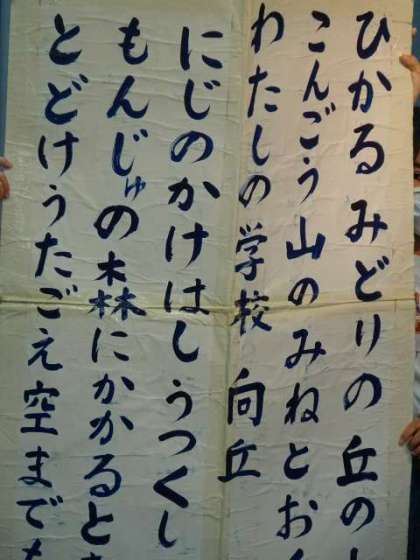 ひかるみどりの丘の
こんごう山のみねとおく
わたしの学校　向丘
にじのかけはしうつくし
もんじゅの森にかかると
とどけうたごえ空までも